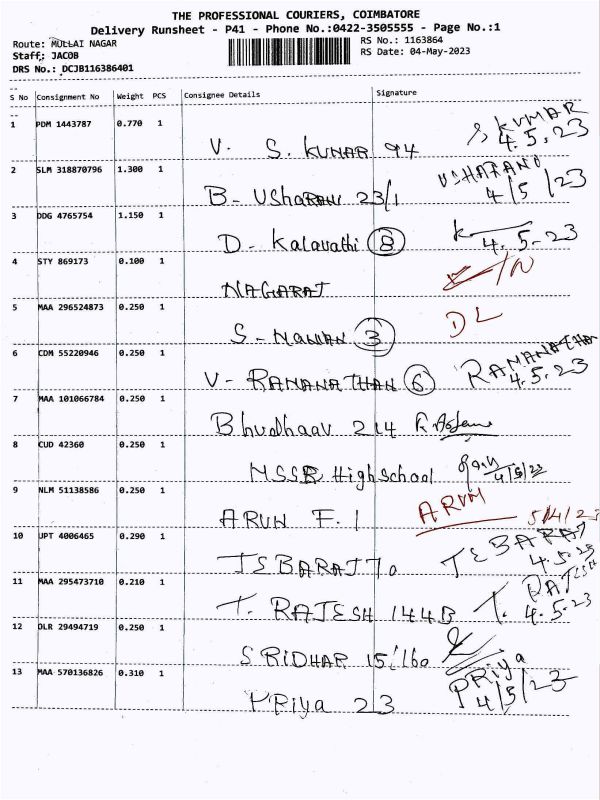 THE PROFESSIONAL COURIERS, COIMBATORE
Delivery Runsheet - P41 - Phone No.:0422-3505555 - Page No.:1
Route: MULLAI NAGAR
RS No.: 1163864
Staff: JACOB
RS Date: 04-May-2023
DRS No.: DCJB116386401
S No Consignment No Weight PCS Consignee Details Signature
1 PDM 1443787 0.770 1 V. S. KUMAR 94 S KUMAR
4.5.23
2 SLM 318870796 1.300 1 B- USHARANI 23/1 USHARANI
4/5/23
3 DDG 4765754 1.150 1 D- Kalavathi 8 K
4.5.23
4 STY 869173 0.100 1 NAGARAJ
5 MAA 296524873 0.250 1 S- 3 DL
6 CDM 55220946 0.250 1 V- RAMANATHAN 6 RAMANATHAN
4.5.23
7 MAA 101066784 0.250 1 214
8 CUD 42360 0.250 1 High School 4/5/23
9 NLM 51138586 0.250 1 ARUN F.1 ARUN
5/4/23
10 JPT 4006465 0.290 1 JEBARAJ 70 JEBARAJ
4.5.23
11 MAA 295473710 0.210 1 T. RAJESH 144B T. RAJESH
4.5.23
12 DLR 29494719 0.250 1 SRIDHAR 15/160
13 MAA 570136826 0.310 1 PRiya 23 PRiya
4/5/23